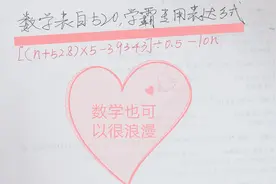 数学表白520,学霸专用表达式
[(n+52.8)×5-3.9343]÷0.5-10n
数学也可
以很浪漫